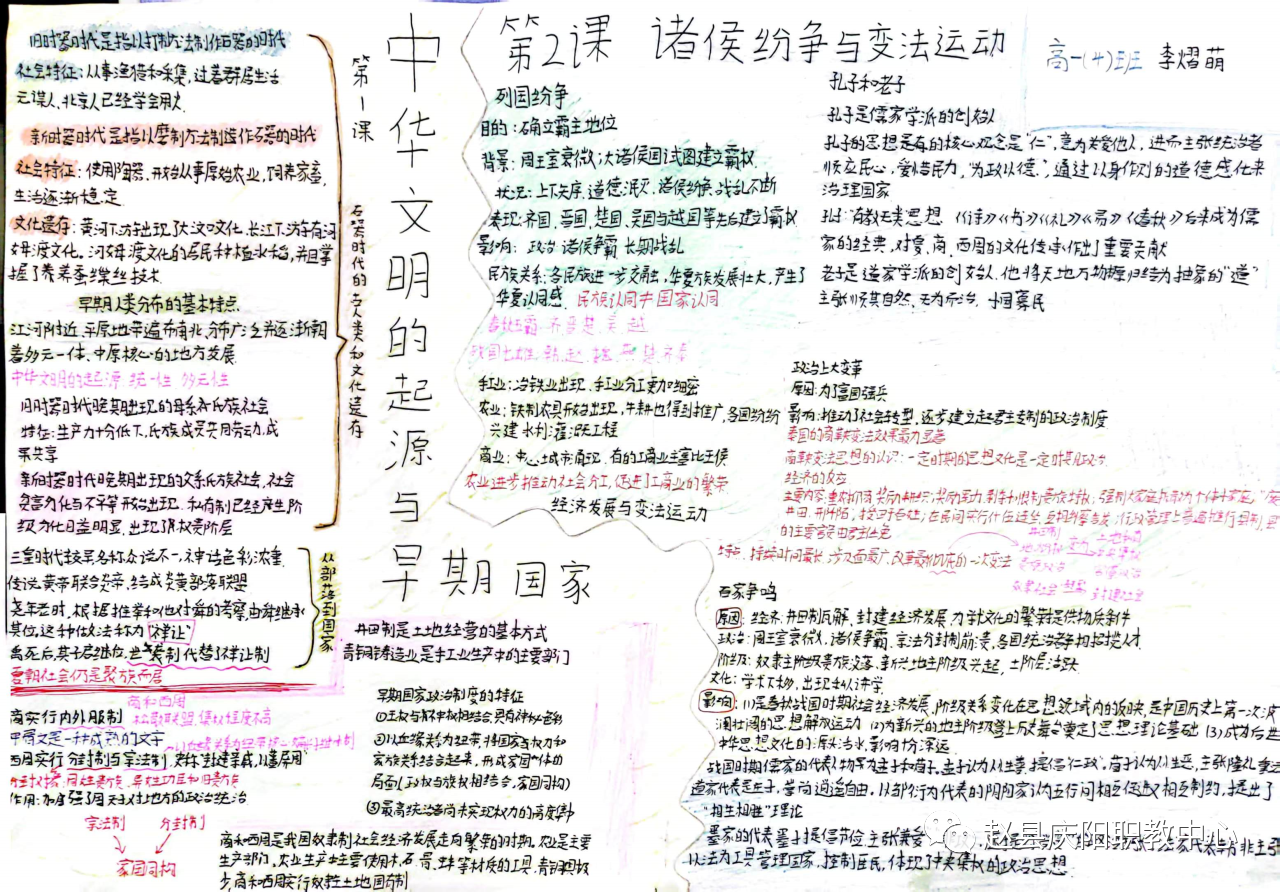 中华文明的起源与早期国家
第1课
石器时代的古人类和文化遗存
旧时器时代是指以打制方法制作石器的时代
社会特征：从事渔猎和采集，过着群居生活
元谋人、北京人已经学会用火
新时器时代是指以磨制方法制造作石器的时代
社会特征：使用陶器、开始从事原始农业，饲养家畜，
生活逐渐稳定
文化遗存：黄河下游出现了大汶口文化，长江下游有河
姆渡文化。河姆渡文化的居民种植水稻，并且掌
握了养蚕缫丝技术
早期人类分布的基本特点
江河附近、平原地带遍布南北、分布广
着多元一体、中原核心的地方发展
中华文明的起源 统一性 多元性
旧时器时代晚期出现的母系氏族社会
特征：生产力十分低下，氏族成员共同劳动，成
果共享
新时器时代晚期出现的父系氏族社会，社会
贫富分化与不平等开始出现，私有制已经产生阶
级分化日益明显，出现了权贵阶层
从部落到国家
三皇时代较早，名称众说不一，神话色彩浓重
传说黄帝联合炎帝，结成炎黄部落联盟
尧年老时，根据推举和他对舜的考察，由舜继承
其位，这种做法称为“禅让”
禹死后，其子启继位，世袭制代替了禅让制
夏朝社会仍是聚族而居
商和西周
商实行内外服制 松散联盟，集权程度不高
甲骨文是一种成熟的文字
西周实行分封制与宗法制
作用：加强了周天子对地方的政治统治
宗法制 分封制
家国同构
井田制是土地经营的基本方式
青铜铸造业是手工业生产中的主要部门
早期国家政治制度的特征
①王权与神权相结合具有神秘色彩
②以血缘关系为纽带，将国家权力和
家族关系结合起来，形成家国一体的
局面（政权与族权相结合，家国同构）
③最高统治者尚未实现权力的高度集中
商和西周是我国奴隶制社会经济发展走向繁荣的时期，农业是主要
生产部门，农业生产主要使用木、石、骨、蚌等材质的工具，青铜农具极
少，商和西周实行奴隶主土地国有制
第2课 诸侯纷争与变法运动
高一(4)班 李熠萌
列国纷争
目的：确立霸主地位
背景：周王室衰微；大诸侯国试图建立霸权
状况：上下失序，道德泯灭，诸侯纷争，战乱不断
表现：齐国、晋国、楚国、吴国与越国等先后建立了霸权
影响：政治 诸侯争霸 长期战乱
民族关系：各民族进一步交融，华夏族发展壮大，产生了
华夏认同感 民族认同 国家认同
春秋五霸 齐 晋 楚 吴 越
战国七雄
手工业：冶铁业出现，手工业分工更加细密
农业：铁制农具开始出现，牛耕也得到推广，各国纷纷
兴建水利灌溉工程
商业：中心城市涌现，有的工商业主富比王侯
农业进步推动社会分工，促进了工商业的繁荣
经济发展与变法运动
孔子和老子
孔子是儒家学派的创始人
孔子的思想是有的核心观念是“仁”，意为关爱他人，进而主张统治者
顺应民心，爱惜民力，“为政以德”，通过以身作则的道德感化来
治理国家
有教无类思想 《诗》《书》《礼》《易》《春秋》后来成为儒
家的经典，对夏、商、西周的文化传承作出了重要贡献
老子是道家学派的创始人，他将天地万物归结为抽象的“道”
主张顺其自然，无为而治，小国寡民
政治上大变革
原因：为了富国强兵
影响：推动了社会转型，逐步建立起君主专制的政治制度
秦国的商鞅变法效果最为显著
商鞅变法思想的认识：一定时期的思想文化是一定时期政治、
经济的反应
特点：持续时间最长，涉及面最广，改革最彻底的一次变法
百家争鸣
原因：经济：井田制瓦解，封建经济发展，为学术文化的繁荣提供物质条件
政治：周王室衰微，诸侯争霸，宗法分封制崩溃，各国统治者争相招揽人才
阶级：奴隶主阶级贵族没落，新兴地主阶级兴起，士阶层活跃
文化：学术下移，出现私人讲学
影响：(1)是春秋战国时期社会经济发展、阶级关系变化在思想领域内的反映，是中国历史上第一次波
澜壮阔的思想解放运动 (2)为新兴的地主阶级登上历史舞台奠定了思想理论基础 (3)成为后世
中华思想文化的源头活水，影响十分深远
战国时期儒家的代表人物军为孟子和荀子，孟子认为人性善，提倡“仁政”，荀子认为人性恶，主张隆礼重法
道家代表是庄子，崇尚逍遥自由，以邹衍为代表的阴阳家认为五行间相互促进又相互制约，提出了
“相生相胜”理论
墨家的代表墨子提倡节俭，主张兼爱
以法为工具管理国家，控制臣民，体现了中央集权的政治思想
赵县庆阳职教中心